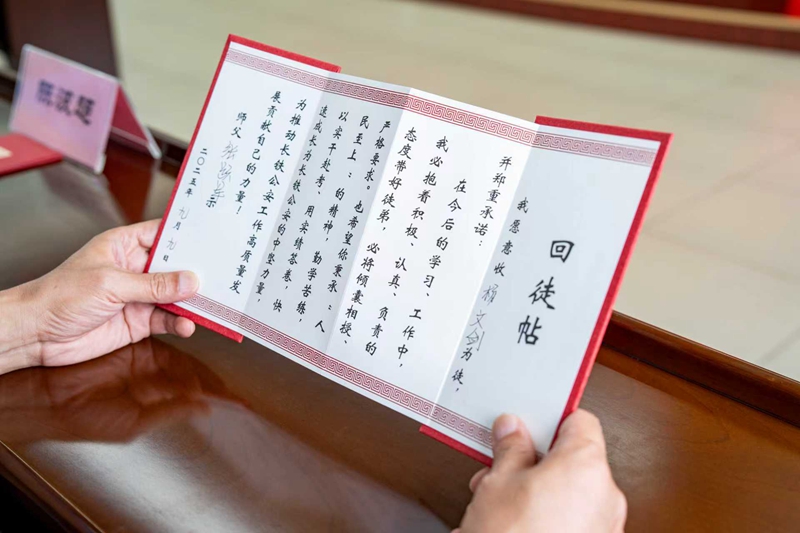 回徒帖
我愿意收杨文剑为徒，
并郑重承诺：
在今后的学习、工作中，
我必抱着积极、认真、负责的
态度带好徒弟，必将倾囊相授、
严格要求。也希望你秉承：人
民至上：的精神，勤学苦练，
以实干赴考：用实绩答卷，快
速成长为长铁公安的中坚力量，
为推动长铁公安工作高质量发
展贡献自己的力量！
师父 示
二〇二五年九月九日